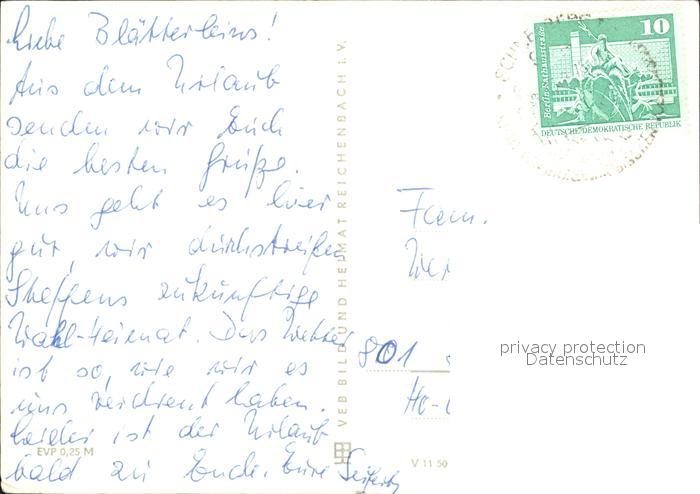 Liebe Blätterleins!
Aus dem Urlaub
senden wir Euch
die besten Grüße.
Uns geht es hier
gut, wir durchstreifen
Steffens zukünftige
Wahl-Heimat. Das Wetter
ist so, wie wir es
uns verdient haben.
Leider ist der Urlaub
bald zu Ende. Eure Seiferts
EVP 0,25 M
VEB BILD UND HEIMAT REICHENBACH i. V.
V 11 50
10
Berlin, Rathausstraße
DEUTSCHE DEMOKRATISCHE REPUBLIK
Fam.
801
Ho-
privacy protection
Datenschutz